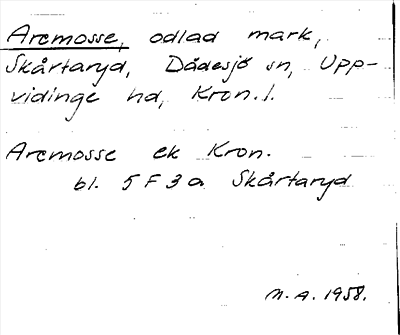 Arcmosse, odlad mark,
Skårtaryd, Dädesjö sn, Upp-
vidinge hd, Kron. l.
Arcmosse ek Kron.
bl. 5 F 3 a Skårtaryd
M. A. 1958.